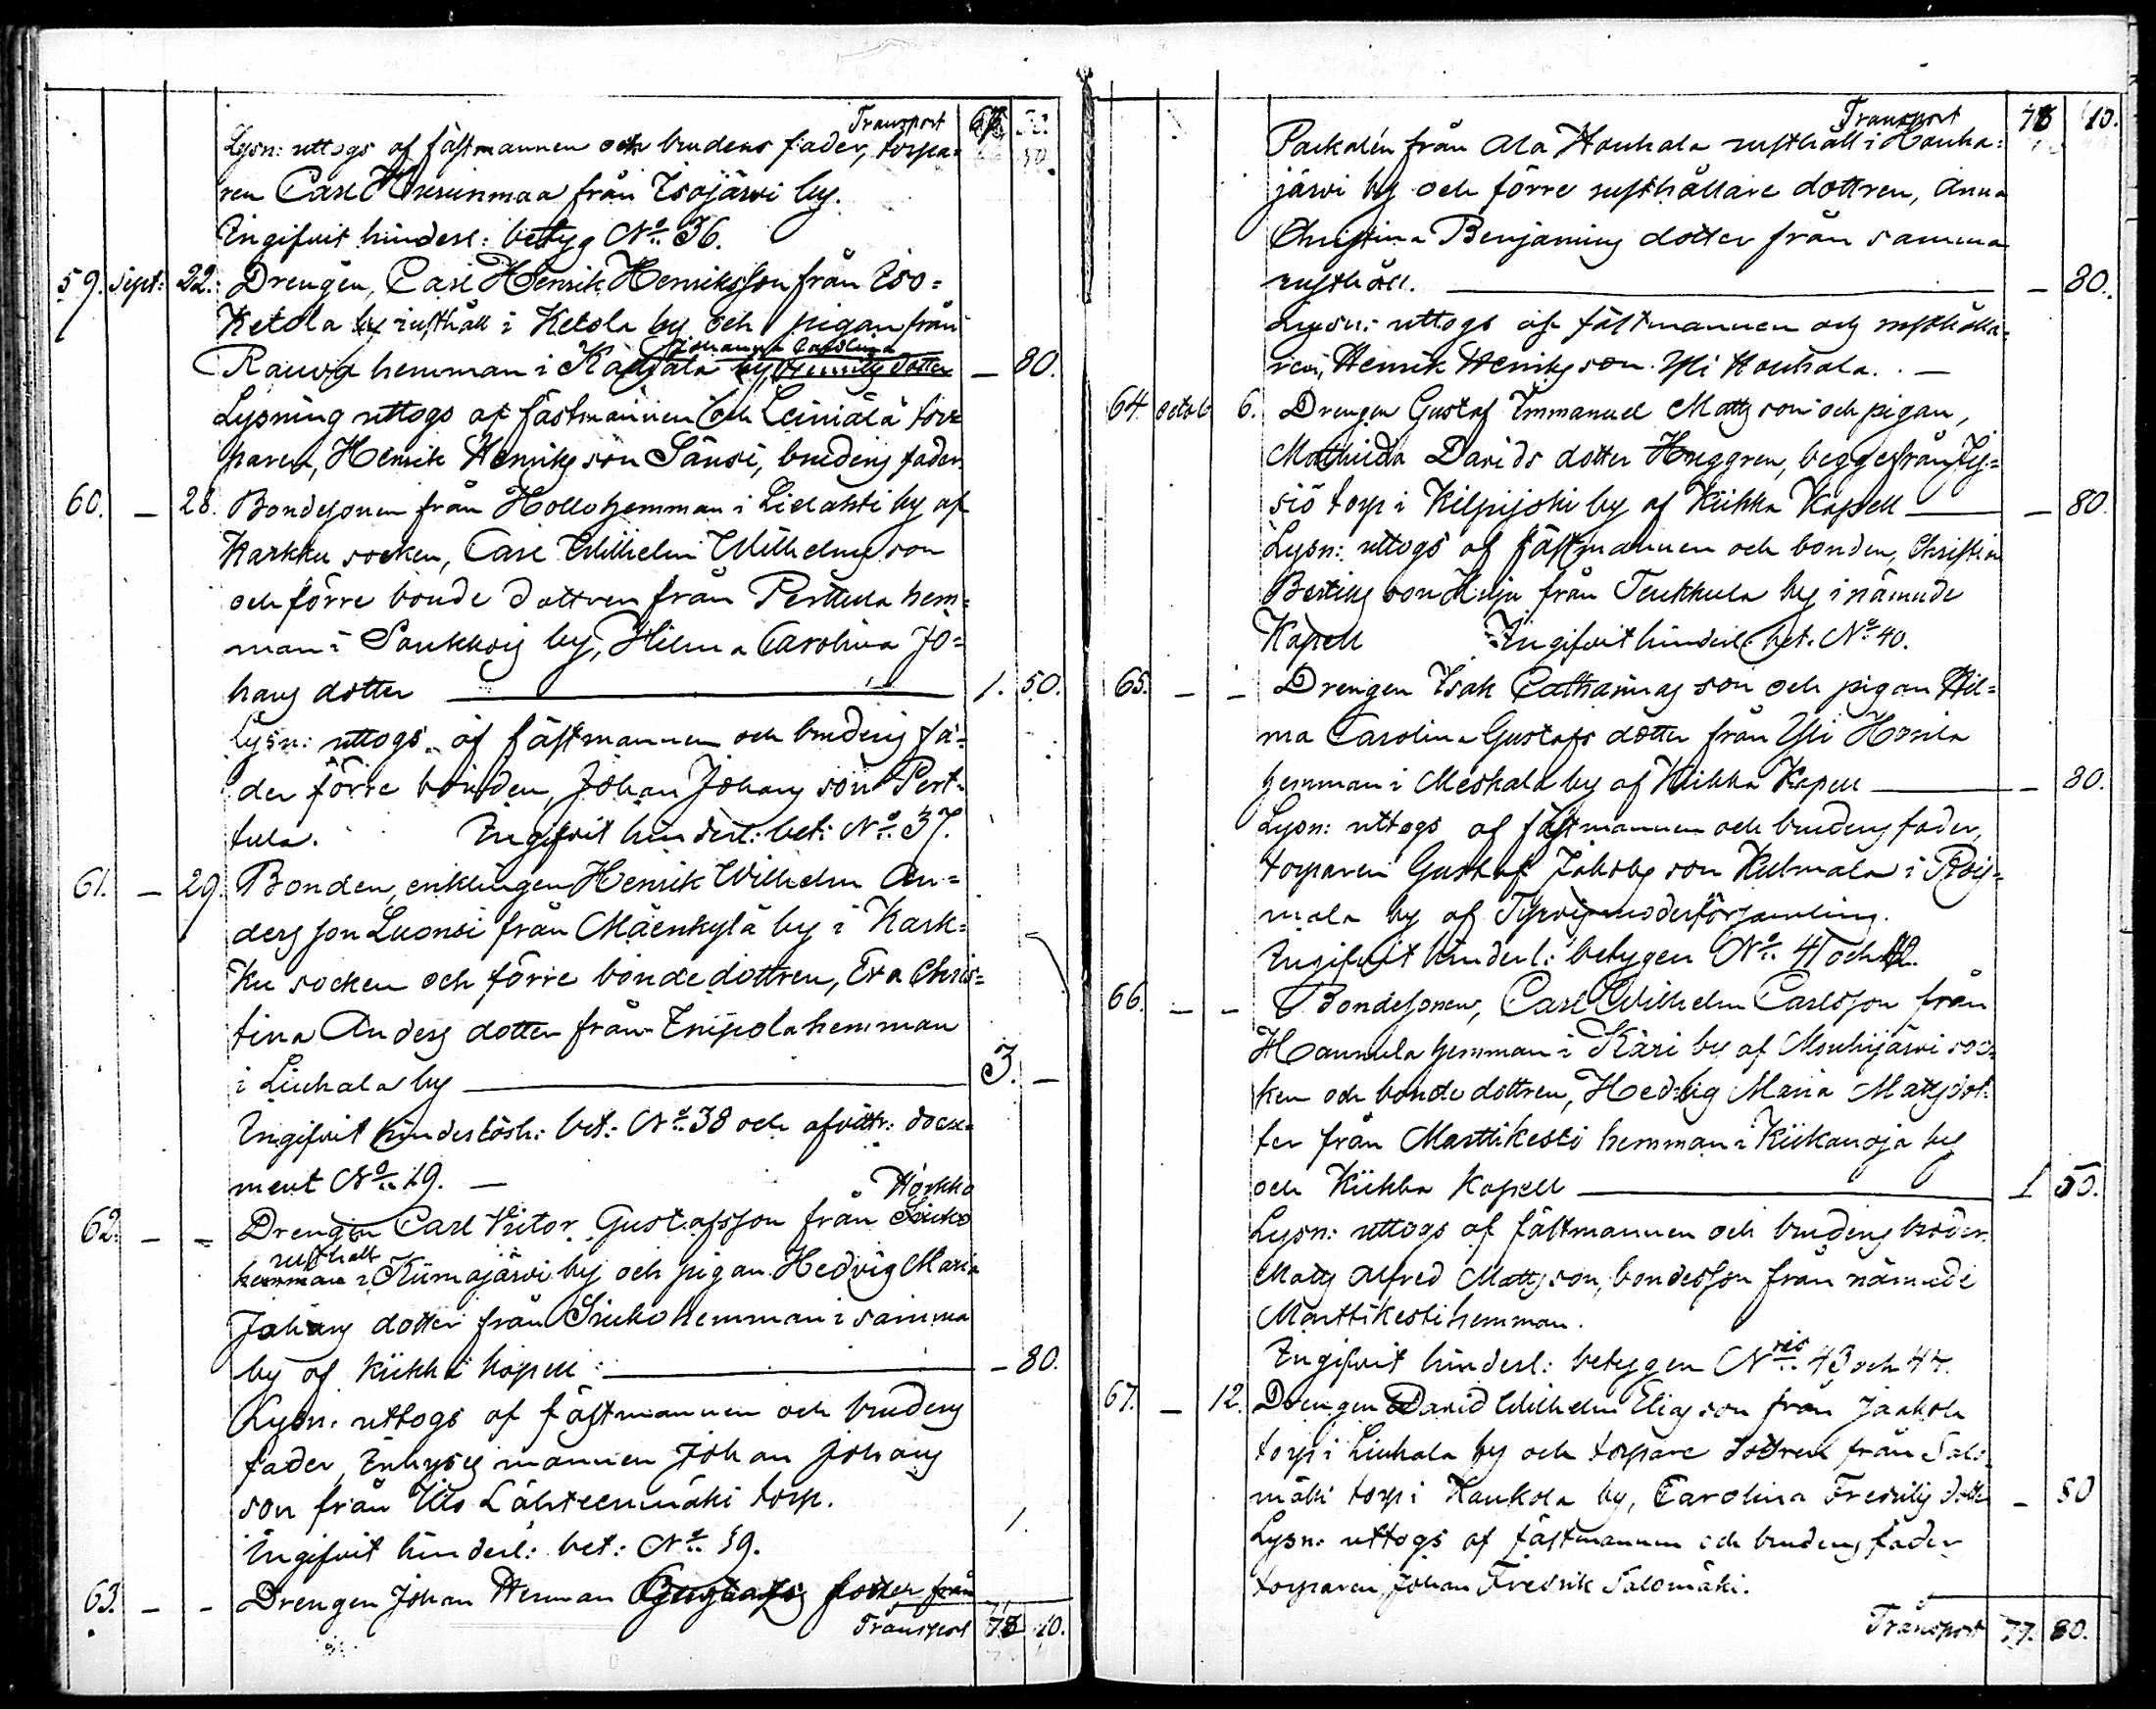 Transport
Lysn: uttogs af fästmannen och brudens fader, torpa=
ren Carl från Isojärvi by.
Ingifvit hinderl: betyg No 36.
59. Sept: 22. Drengen, Carl Henrik Henriksson från Iso=
Ketola rusthåll i Ketola by och pigan från
Johanna Carolina
Rauva hemman i by Henriks dotter — 80.
Lysning uttogs af fästmannen och Leiniälä tor
paren, Henrik Henriks son Sänsi, brudens fader
60. — 28. Bondesonen från Hollo hemman i Lielahti by af
Karkku socken, Carl Wilhelm Wilhelms son
och förre bonde dottren från Perttula hem=
man i Soukko by, Hilma Carolina Jo=
hans dotter 1. 50.
Lysn: uttogs af fästmannen och brudens fa=
der förre bonden, Johan Johans son Pert=
tula. Ingifvit hinderl: bet: No 37.
61. — 29. Bonden, enklingen Henrik Wilhelm An=
ders son Luonsi från Mäenkylä by i Kark=
ku socken och förre bonde dottren, Eva Chris=
tina Anders dotter från hemman
i Liuhala by 3. —
Ingifvit hinderlösh: bet: No 38 och afvittr: docu=
ment No 19. —
Horkko
62. — — Drengen Carl Victor Gustafsson från Sieko
rusthåll
hemman i Kiimajärvi by och pigan Hedvig Maria
Johans dotter från Sieko hemman i samma
by af Kiikka kapell — 80.
Lysn: uttogs af fästmannen och brudens
fader, Inhyses mannen Johan Johans
son från Ulo Lähteenmäki torp.
Ingifvit hinderl: bet: No 39.
63. — — Drengen Johan Herman Gustafs från
Transport 10.
Transport 10.
från Ala Houhala rusthåll i Houha=
järvi by och förre rusthållare dottren, Anna
Christina Benjamins dotter från samma
rusthåll. — 80.
Lysn: uttogs af fästmannen och rusthålla=
ren, Henrik Henriks son Yli Houhala. —
64. Octob 6. Drengen Gustaf Immanuel Matts son och pigan,
Mathilda Davids dotter Huggren, begge från
siö torp i Kilpijoki by af Kiikka Kapell — 80.
Lysn: uttogs af fästmannen och bonden, Christian
Bertils son från Teukkula by i nämnde
Kapell Ingifvit hinderl: bet. No 40.
65. — — Drengen Isak Catharinas son och pigan Hil=
ma Carolina Gustafs dotter från Yli Honila
hemman i Meskala by af Kiikka Kapell — 80.
Lysn: uttogs af fästmannen och brudens fader,
torparen Gustaf Jakobs son Kulmala i Rois=
mala by af Tyrvis moderförsamling.
Ingifvit hinderl: betygen No 41 och 42.
66. — — Bondesonen, Carl Wilhelm Carlsson från
Hannula hemman i Käri by af Mouhijärvi soc=
ken och bonde dottren, Hedvig Maria Matts dot=
ter från Marttikesti hemman i Kiikanoja by
och Kiikka Kapell 1 50.
Lysn: uttogs af fästmannen och brudens broder
Matts Alfred Matts son, bondesson från nämnde
Marttikesti hemman.
Ingifvit hinderl: betygen Nris 43 och 44.
67. — 12. Drengen David Wilhelm Elias son från Jaakola
torp i Liuhala by och torpare dottren från Salo=
mäki torp i Kaukola by, Carolina Fredriks dotter — 80
Lysn: uttogs af fästmannen och brudens fader
torparen Johan Fredrik Salomäki.
Transport 77. 80.